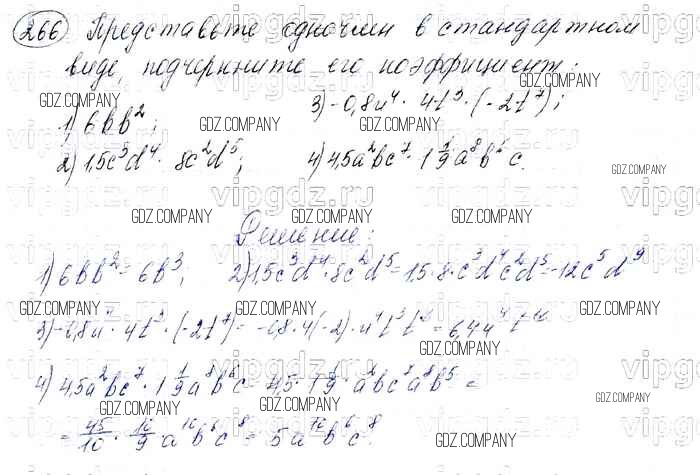 266 Представьте одночлен в стандартном
виде, подчеркните его коэффициент:
1) 6bb²;
3) -0,8u⁴ · 4t³ · (-2t⁷);
2) 1,5c³d⁴ · 8c²d⁵;
4) 4,5a²bc⁷ · 1 1/9 a⁸b⁵c.
Решение:
1) 6bb² = 6b³; 2) 1,5c³d⁴ · 8c²d⁵ = 1,5 · 8 · c³d⁴c²d⁵ = 12c⁵d⁹
3) -0,8u⁴ · 4t³ · (-2t⁷) = -0,8 · 4(-2) · u⁴t³t⁷ = 6,4u⁴t¹⁰
4) 4,5a²bc⁷ · 1 1/9 a⁸b⁵c = 4,5 · 1 1/9 · a²bc⁷a⁸b⁵ =
= 45/10 · 10/9 a¹⁰b⁶c⁸ = 5a¹⁰b⁶c⁸.
GDZ.COMPANY
vipgdz.ru